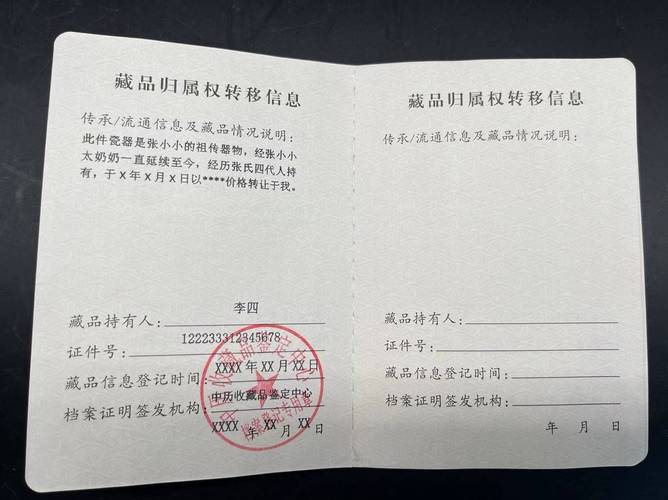 藏品归属权转移信息
传承/流通信息及藏品情况说明：
此件瓷器是张小小的祖传器物，经张小小
太奶奶一直延续至今，经历张氏四代人持
有，于X年X月X日以****价格转让于我。
藏品持有人：李四
证件号：122233312345678
藏品信息登记时间：XXXX年XX月XX日
档案证明签发机构：中历收藏品鉴定中心
XXXX年XX月XX日
档案登记专用章
藏品归属权转移信息
传承/流通信息及藏品情况说明：
藏品持有人：
证件号：
藏品信息登记时间：
档案证明签发机构：
年 月 日